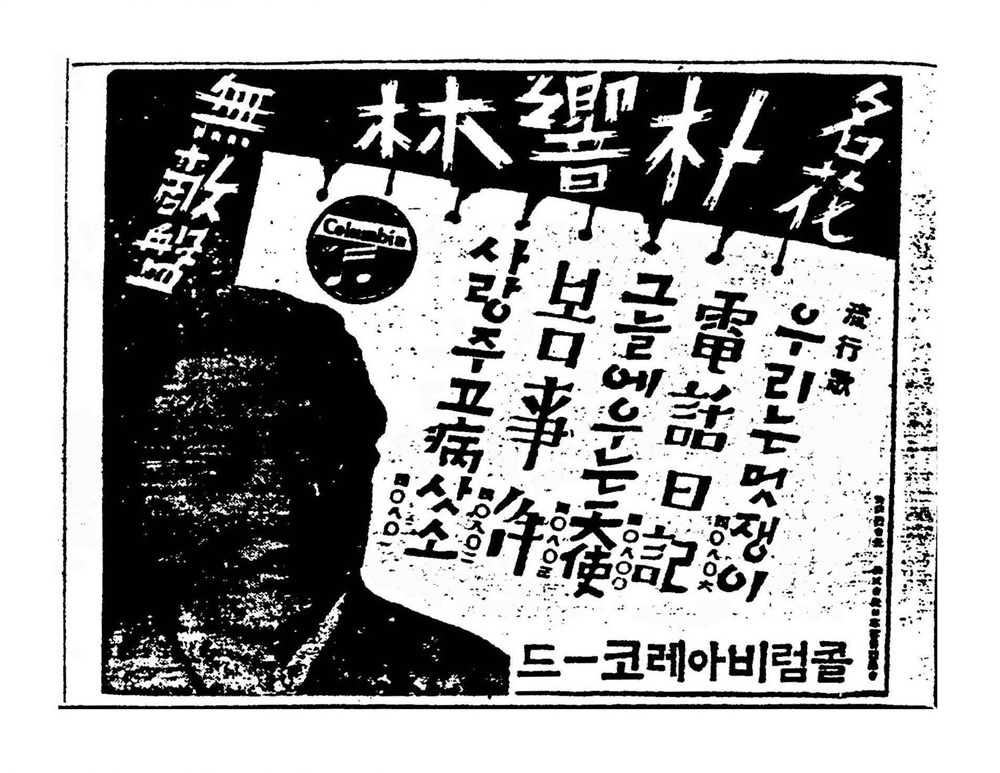 名花
朴響林
無敵
Columbia
流行歌
우리는멋쟁이
電話日記
그늘에우는天使
봄事件
사랑주고病삿소
콜럼비아레코ー드